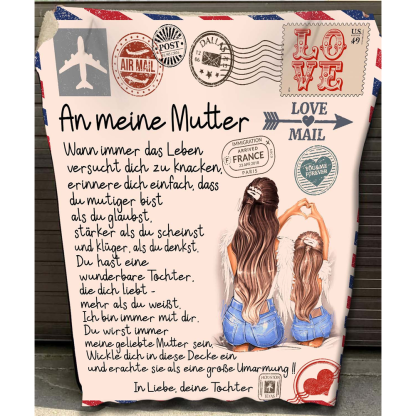 AIR MAIL
POST
DALLAS
LOVE
U.S.
49
An meine Mutter
LOVE
MAIL
Wann immer das Leben
versucht dich zu knacken,
erinnere dich einfach, dass
du mutiger bist
als du glaubst,
stärker als du scheinst
und klüger, als du denkst.
Du hast eine
wunderbare Tochter,
die dich liebt -
mehr als du weißt.
Ich bin immer mit dir.
Du wirst immer
meine geliebte Mutter sein.
Wickle dich in diese Decke ein
und erachte sie als eine große Umarmung !!
In Liebe, deine Tochter
IMMIGRATION
ARRIVED
FRANCE
PARIS
YOU&ME
FOREVER